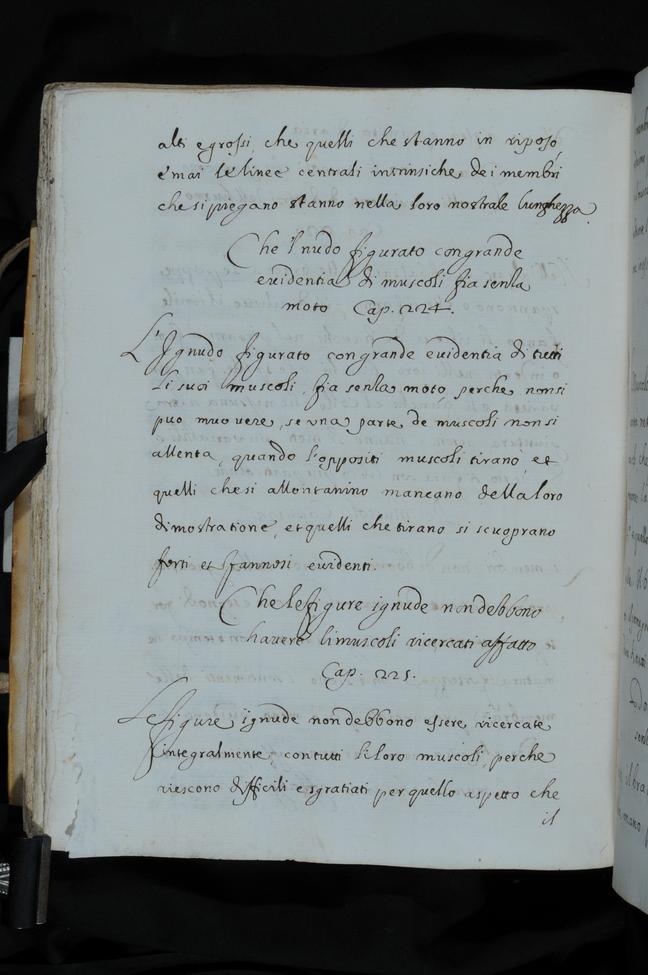 alti e grossi, che quelli che stanno in riposo,
e mai le linee centrali intrinsiche de i membri
che si piegano stanno nella loro nostrale lunghezza.
Che l'nudo figurato con grande
evidentia di muscoli fia senza
moto Cap. 224.
L'Ignudo figurato con grande evidentia di tutti
li suoi muscoli, fia senza moto, perche non si
puo muovere, se una parte de muscoli non si
allenta, quando l'oppositi muscoli tirano, et
quelli che si allontanino mancano della loro
dimostratione, et quelli che tirano si scuoprano
forti et fannosi evidenti.
Che le figure ignude non debbono
havere li muscoli ricercati affatto
Cap. 225.
Le figure ignude non debbono essere ricercate
integralmente, con tutti li loro muscoli, perche
riescono difficili e sgratiati per quello aspetto che
il